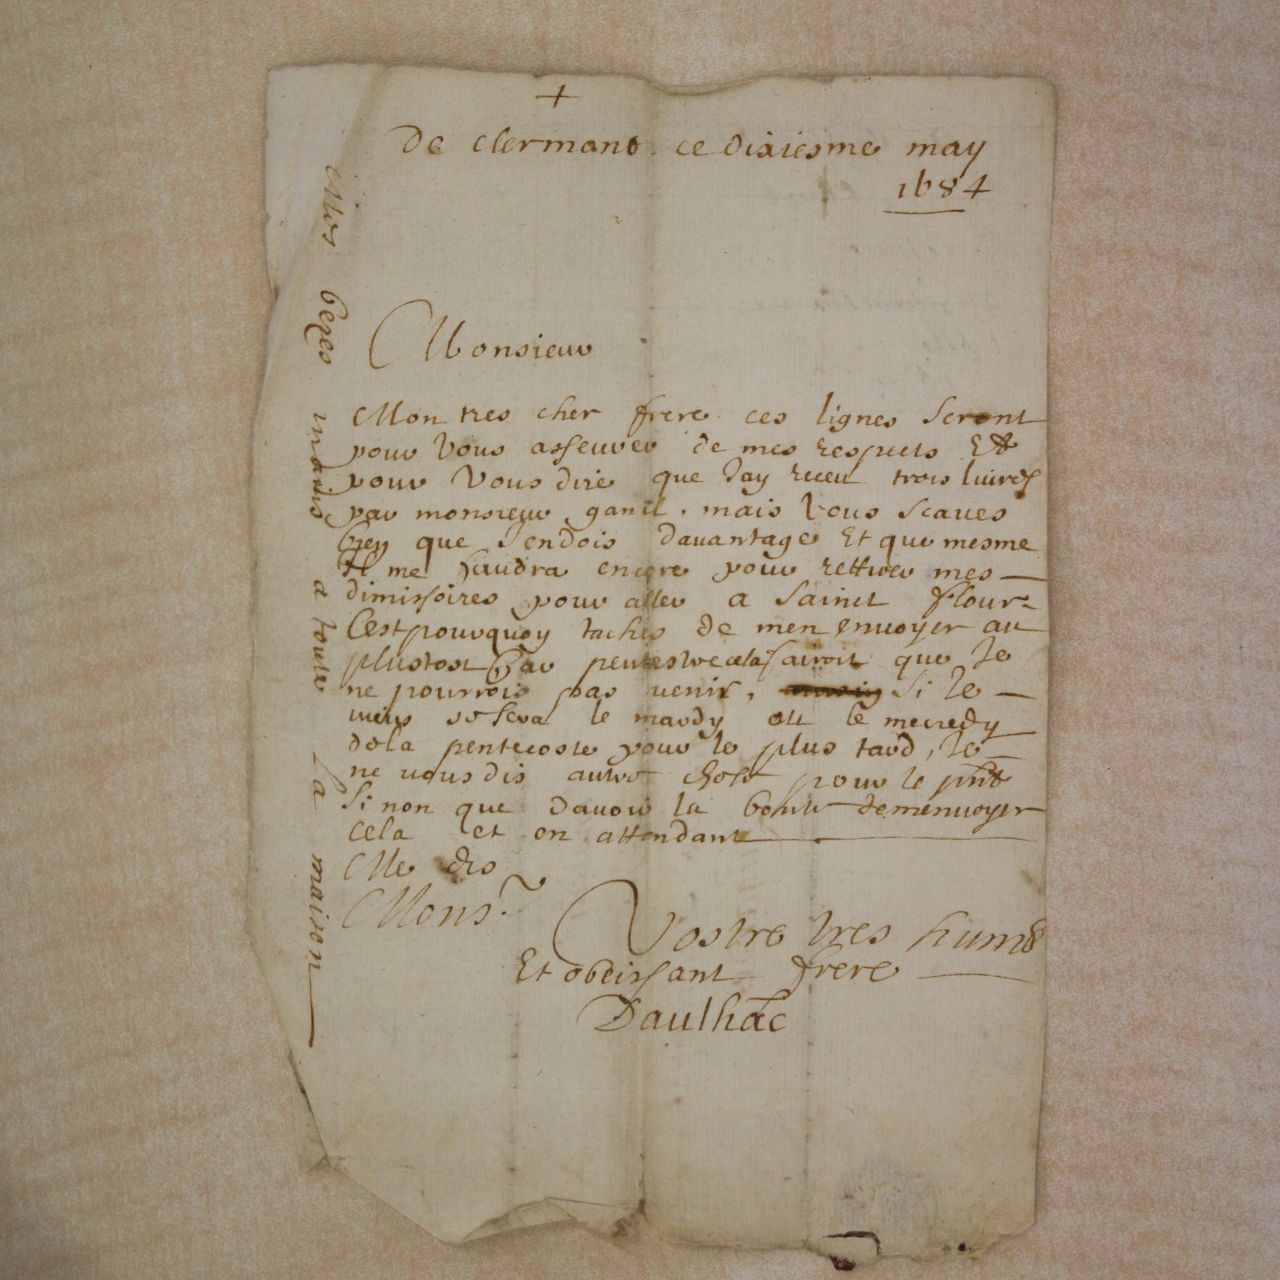 +
De clermont ce dixiesme may
1684
Monsieur
Mon tres cher frere ces lignes seront
pour vous asseurer de mes respects Et
pour vous dire que Jay receu trois livres
par monsieur ganil, mais vous scaves
bien que Jen dois davantage Et que mesme
Il me faudra encore pour rettirer mes
dimissoires pour aller a Sainct flour
Cest pourquoy taches de men envoyer au
plustost car peutestre cela fairoit que Je
ne pourrois pas venir, si Je
viens se sera le mardy ou le mecredy
de la pentecoste pour le plus tard, Je
ne vous dis autre chose pour le pnt
Si non que davoir la bonte de menvoyer
cela et en attendant
Me dis
Monsr.
Vostre tres humb
Et obeissant frere
Daulhac
Mes beses mains a toute la maison